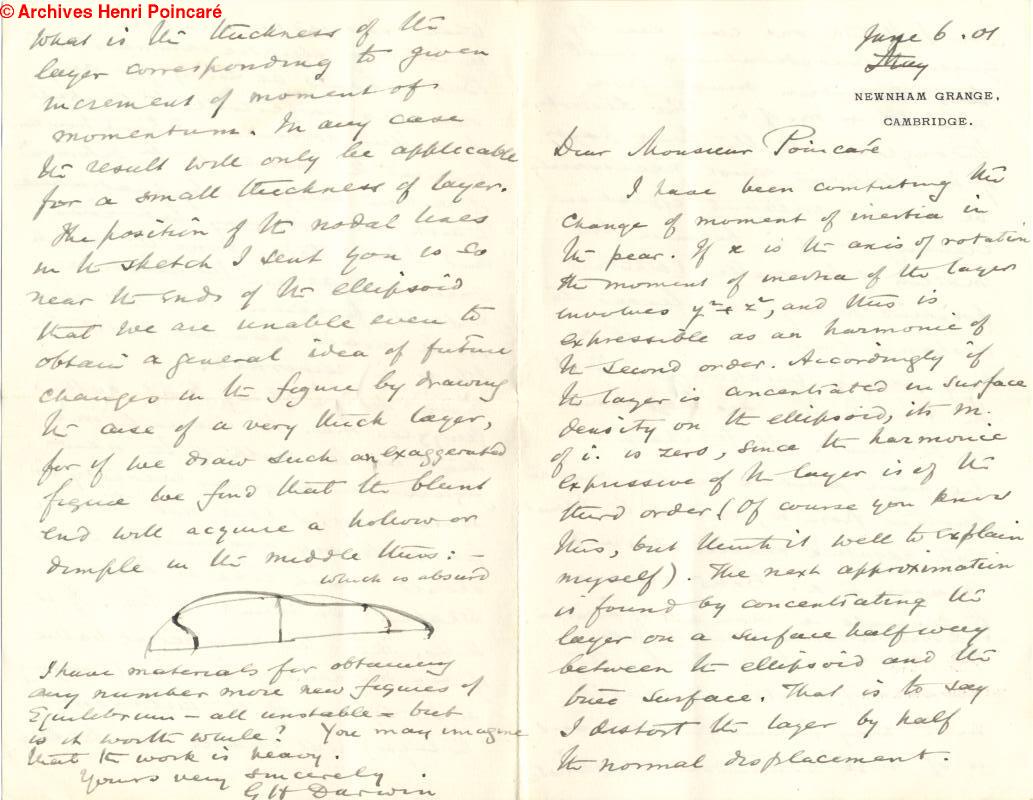 © Archives Henri Poincaré
June 6 . 01
May
NEWNHAM GRANGE,
CAMBRIDGE.
Dear Monsieur Poincaré
I have been computing the
change of moment of inertia in
the pear. If x is the axis of rotation
the moment of inertia of the layer
involves y² + z², and this is
expressible as an harmonic of
the second order. Accordingly if
the layer is concentrated in surface
density on the ellipsoid, its m.
of i. is zero, since the harmonic
expressive of the layer is of the
third order (Of course you know
this, but think it well to explain
myself). The next approximation
is found by concentrating the
layer on a surface half way
between the ellipsoid and the
true surface. That is to say
I distort the layer by half
the normal displacement.
What is the thickness of the
layer corresponding to given
increment of moment of
momentum. In any case
the result will only be applicable
for a small thickness of layer.
The position of the nodal lines
in the sketch I sent you is so
near the ends of the ellipsoid
that we are unable even to
obtain a general idea of future
changes in the figure by drawing
the case of a very thick layer,
for if we draw such an exaggerated
figure we find that the blunt
end will acquire a hollow or
dimple in the middle thus: —
which is absurd
I have materials for obtaining
any number more new figures of
Equilibrium – all unstable – but
is it worth while? You may imagine
that the work is heavy.
Yours very sincerely
G H Darwin